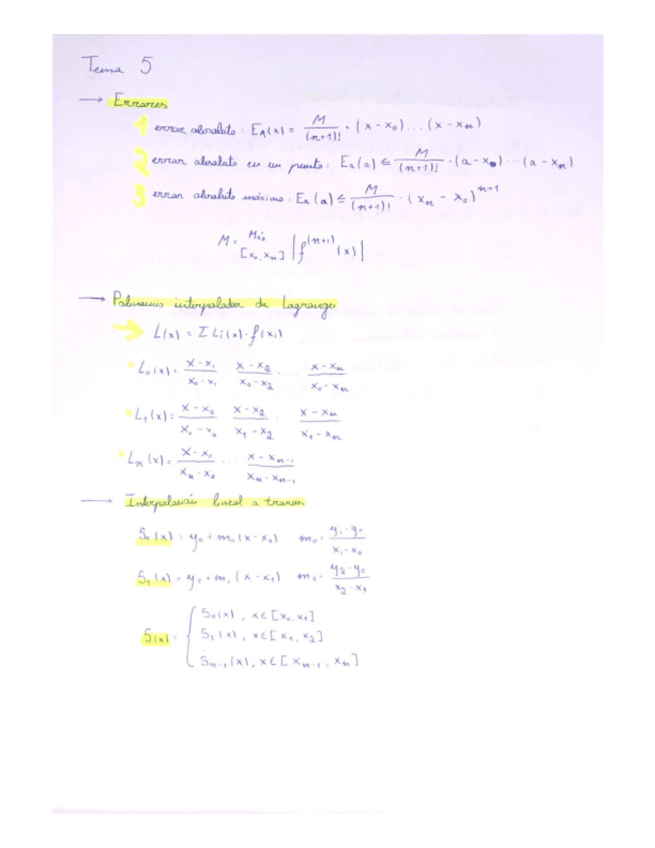 Tema 5
→ Errores
1 error absoluto: E_A(x) = M/(n+1)! · (x - x_0) ... (x - x_n)
2 error absoluto en un punto: E_a(a) ≤ M/(n+1)! · (a - x_0) ... (a - x_n)
3 error absoluto máximo: E_a(a) ≤ M/(n+1)! · (x_n - x_0)^{n+1}
M = Máx [x_0, x_n] |f^{(n+1)}(x)|
→ Polinomio interpolador de Lagrange
→ L(x) = Σ L_i(x) · f(x_i)
· L_0(x) = (x - x_1)/(x_0 - x_1) (x - x_2)/(x_0 - x_2) ... (x - x_n)/(x_0 - x_n)
· L_1(x) = (x - x_0)/(x_1 - x_0) (x - x_2)/(x_1 - x_2) ... (x - x_n)/(x_1 - x_n)
· L_n(x) = (x - x_0)/(x_n - x_0) ... (x - x_{n-1})/(x_n - x_{n-1})
→ Interpolación lineal a trozos
S_0(x) = y_0 + m_0(x - x_0) m_0 = (y_1 - y_0)/(x_1 - x_0)
S_1(x) = y_1 + m_1(x - x_1) m_1 = (y_2 - y_0)/(x_2 - x_1)
S(x) = { S_0(x), x∈[x_0, x_1]
S_1(x), x∈[x_1, x_2]
S_{n-1}(x), x∈[x_{n-1}, x_n]